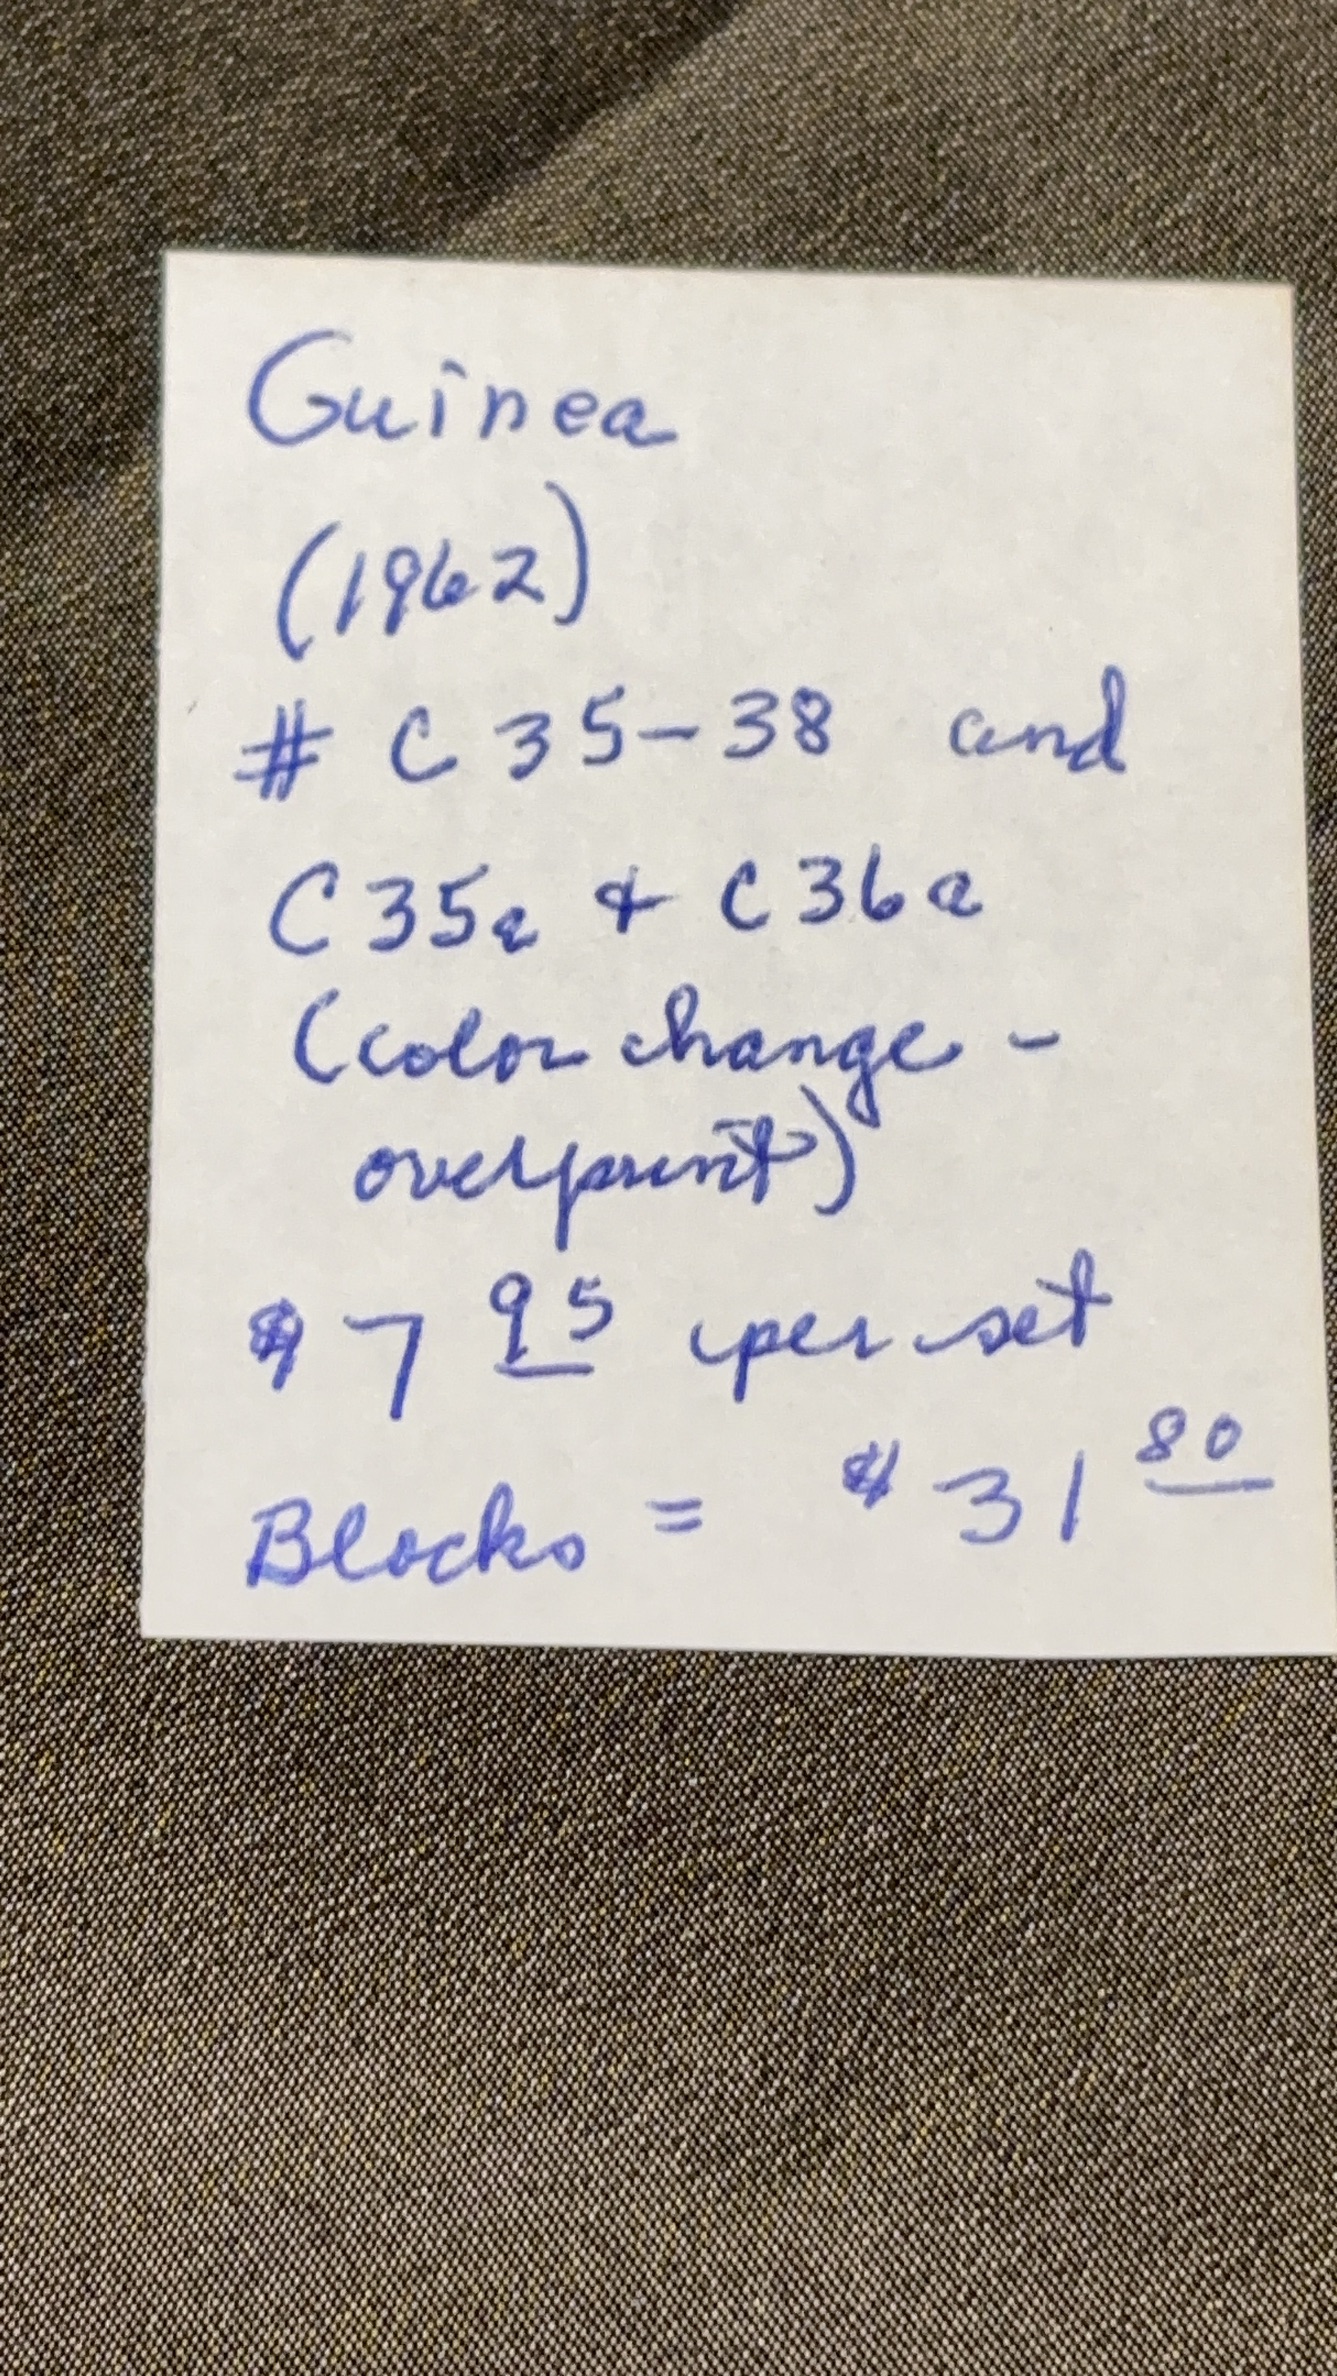 Guinea
(1962)
# C 35-38 and
C 35a & C 36a
(color change -
overprint)
$ 7 95 per set
Blocks = $ 31 80